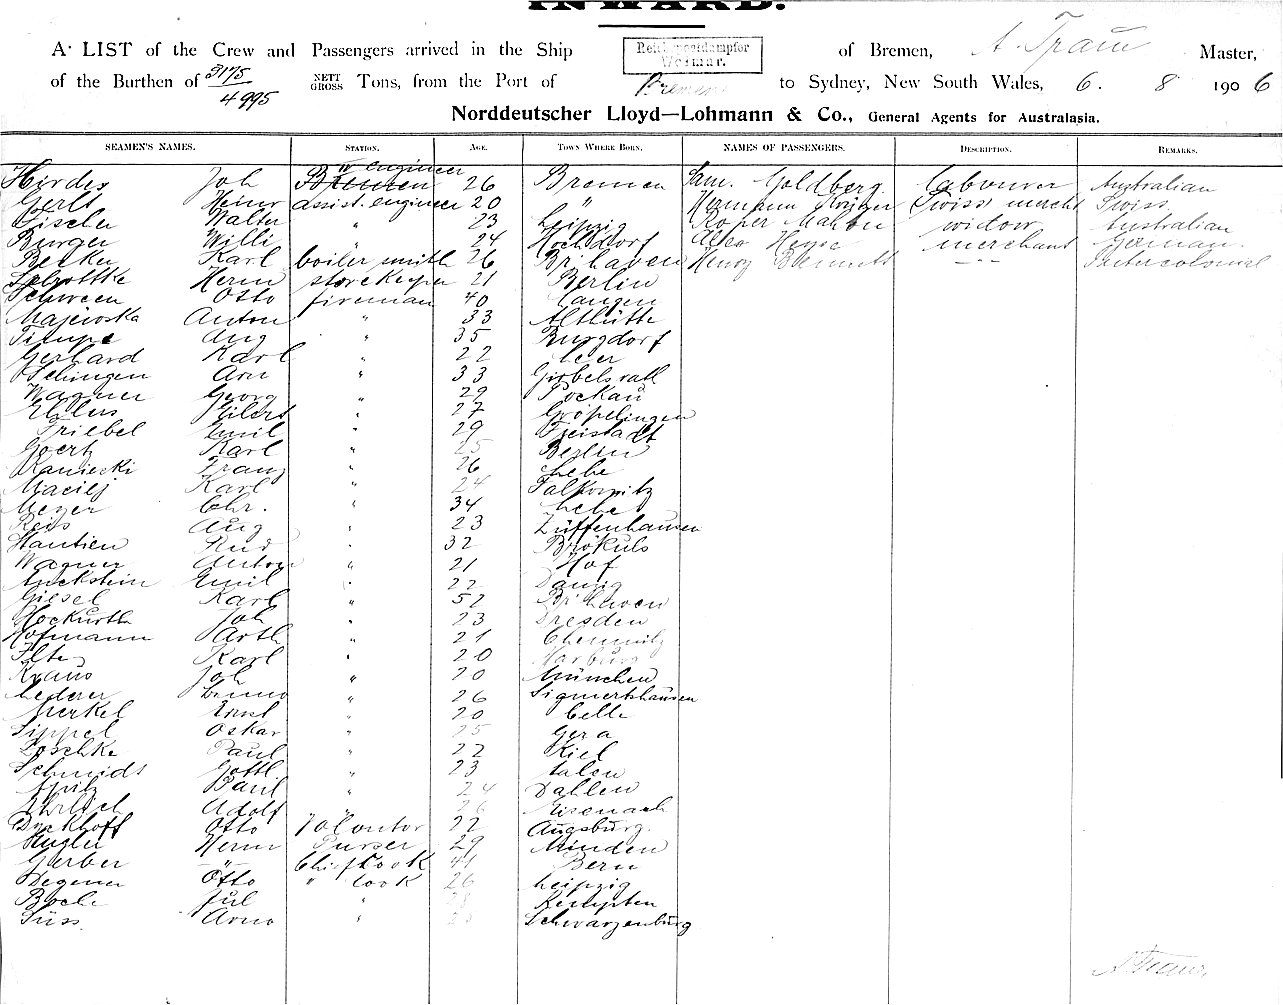 INWARD.
A LIST of the Crew and Passengers arrived in the Ship Reichspostdampfer Weimar. of Bremen, A. Traue Master,
of the Burthen of 3175 / 4995 NETT GROSS Tons, from the Port of Bremen to Sydney, New South Wales, 6. 8 1906
Norddeutscher Lloyd—Lohmann & Co., General Agents for Australasia.
SEAMEN'S NAMES. STATION. AGE. TOWN WHERE BORN. NAMES OF PASSENGERS. DESCRIPTION. REMARKS.
IV engineer
Hirdes Joh Bremen 26 Bremen Sam. Goldberg. Labourer Australian
Gerls Heinr assist. engineer 20 " Hermann Swiss mercht Swiss
Fischer Walter " 23 Leipzig Roper Mahon widow Australian
Burger Willi " 24 Hochdorf Heyse merchant German.
Becker Karl boiler smith 26 Brhaven Henry Bennett - - - Intercolonial
Schottke Herm storekeeper 21 Berlin
Schween Otto fireman 40 Langen
Majewska Anton " 33 Althütte
Timpe Aug " 35 Burgdorf
Gerhard Karl " 22 Leer
Schingen Arn " 33 Girbelsrath
Wagner Georg " 29 Pockau
Ehlers Eilert " 27 Gröpelingen
Friebel Emil " 29 Freistadt
Goertz Karl " 25 Berlin
Kaniecki Franz " 26 Lehe
Maciej Karl " 24 Falkowitz
Meyer Chr. " 34 Lehe
Reis Aug " 23 Züffenhausen
Hantien Rud " 32 Prökuls
Wagner Anton " 21 Hof
Emil " 22 Danzig
Giesel Karl " 52 Brhaven
Hockurth Joh " 23 Dresden
Hofmann Arth " 21 Chemnitz
Ilte Karl " 20 Harburg
Kraus Joh " 20 München
Lederer Benno " 26 Sigmertshausen
Merkel Ernst " 20 Celle
Sippel Oskar " 25 Gera
Zoschke Paul " 22 Kiel
Schmidt Gottl. " 23 Aalen
Apitz Paul " 24 Dahlen
Ehrlich Adolf " 26 Eisenach
Dyckhoff Otto Volontär 22 Augsburg.
Kugler Herm Purser 29 Minden
Gerber " Chief Cook 41 Bern
Degener Otto " Cook 26 Leipzig
Bocle Jul " 28 Kempten
Süss. Arno " 23 Schwarzenburg
A. Traue.